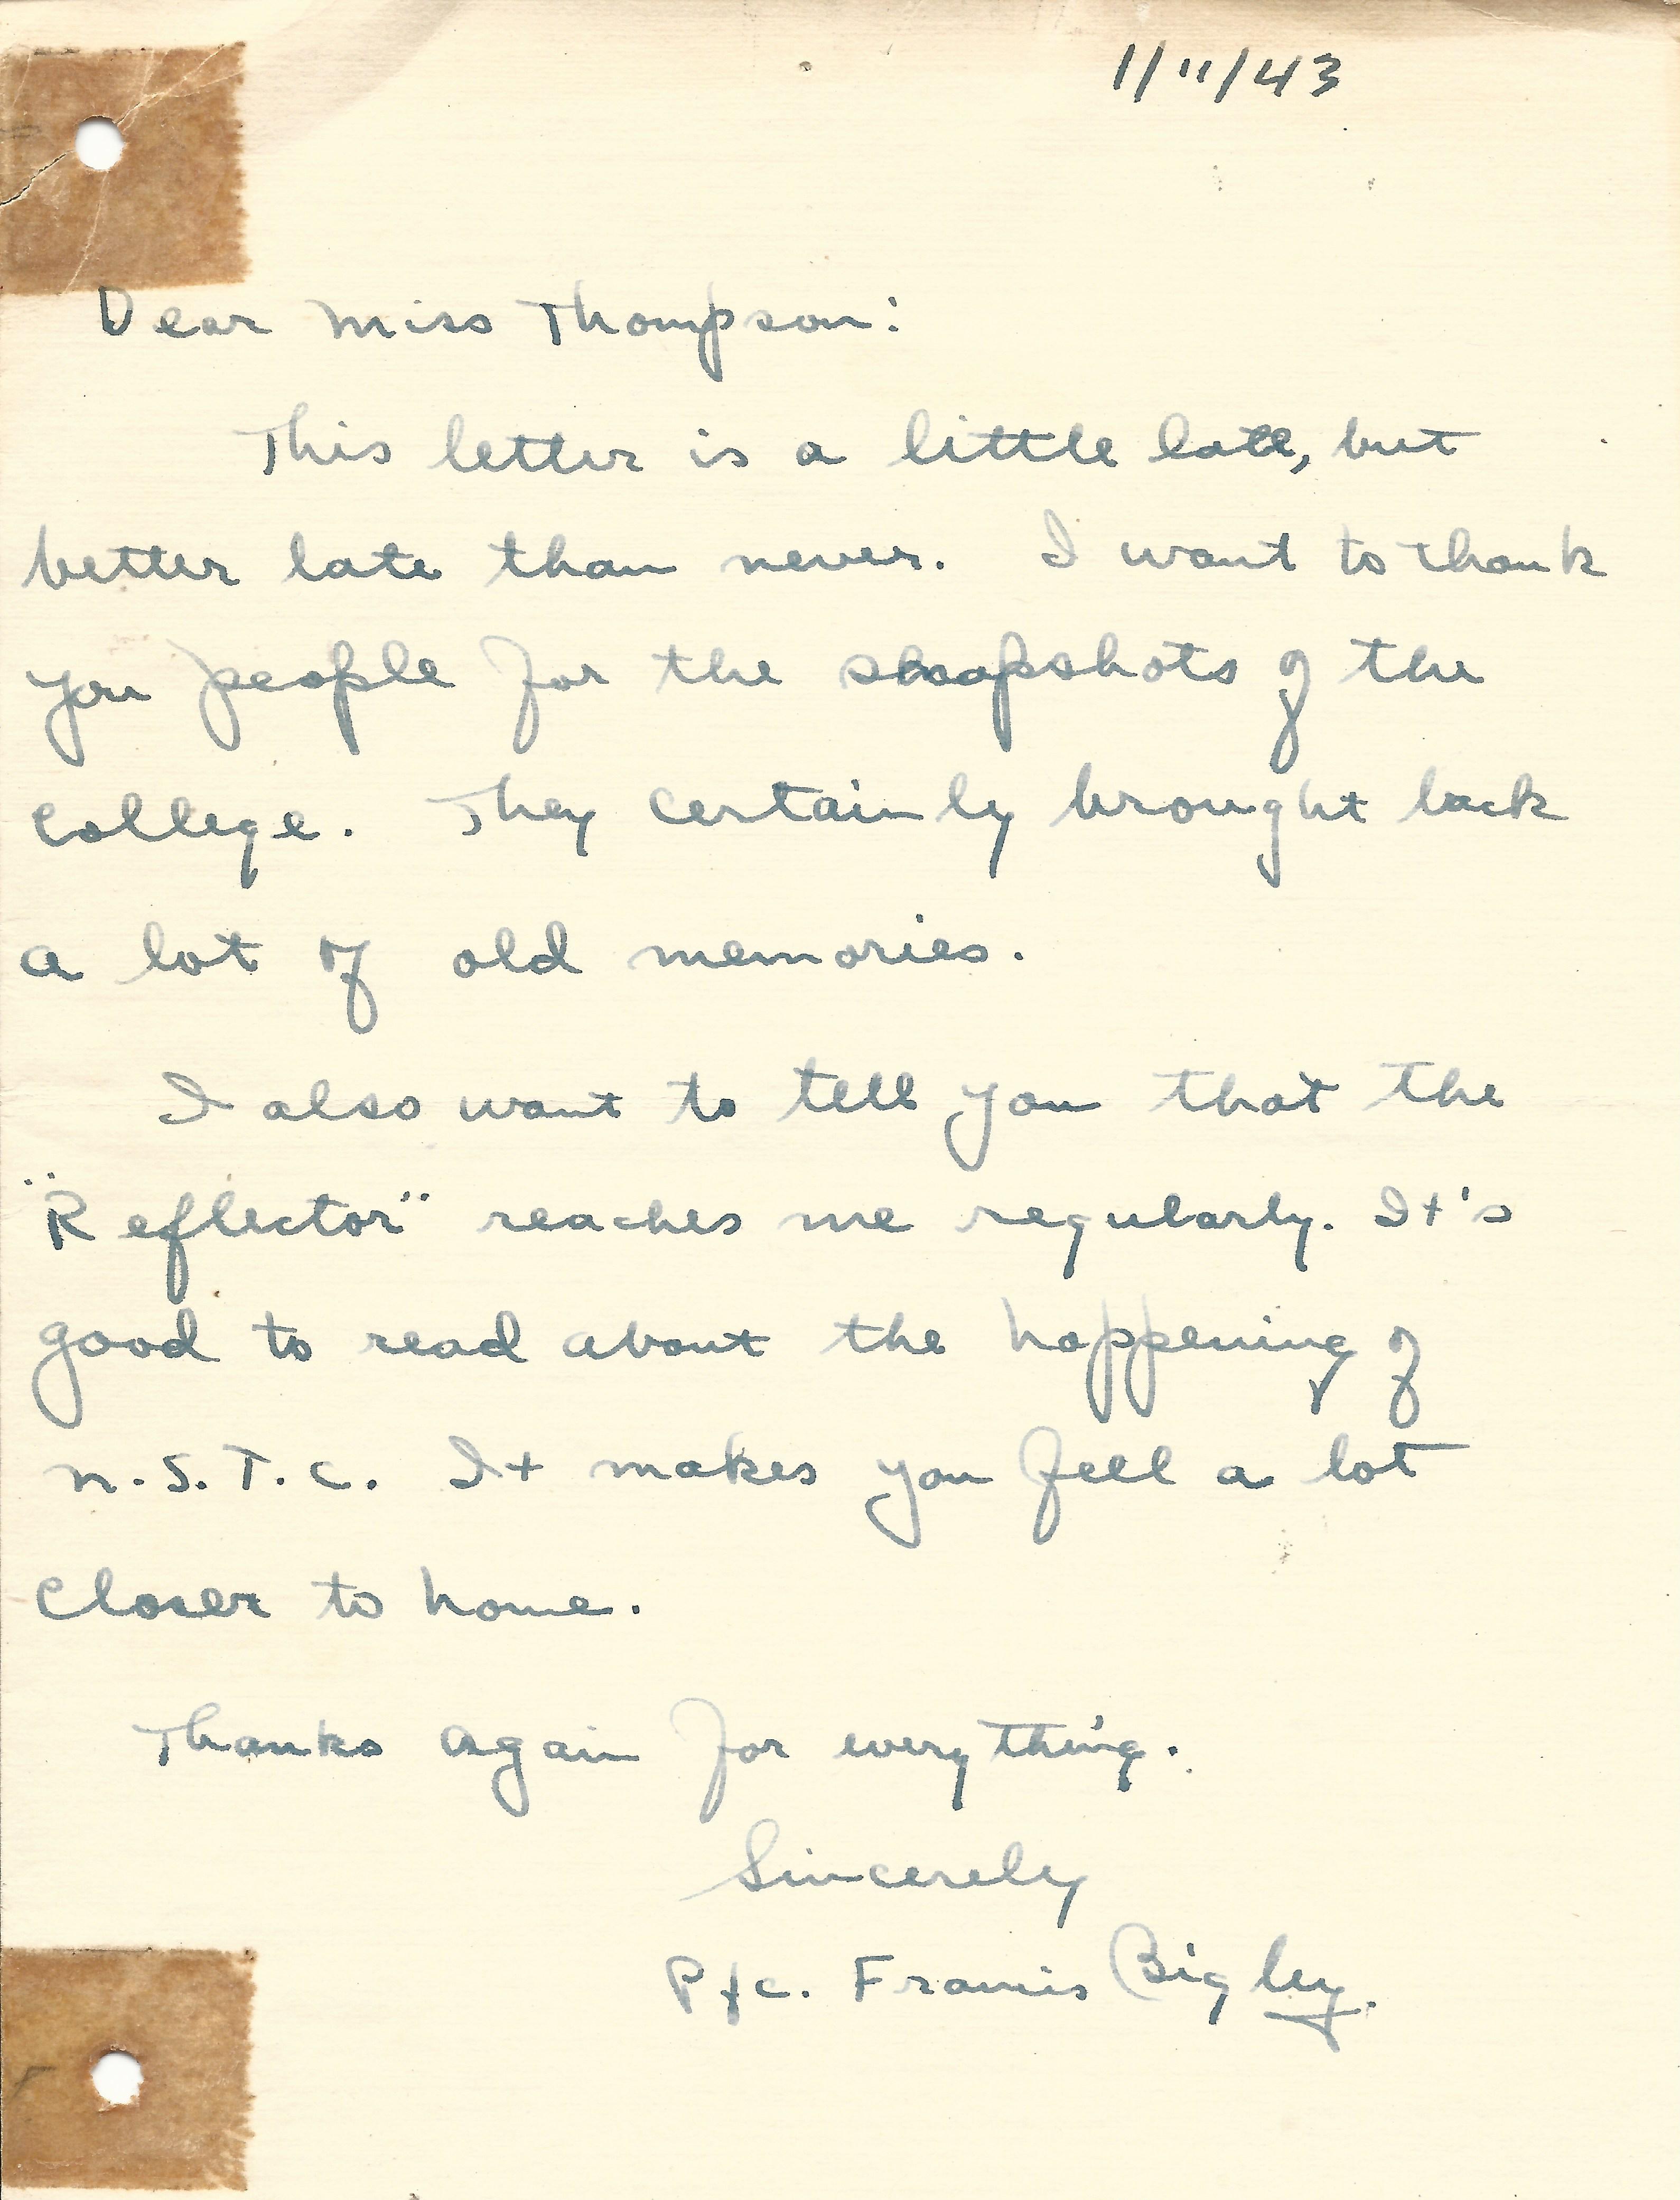 1/11/43
Dear Miss Thompson:
This letter is a little late, but
better late than never. I want to thank
you people for the snapshots of the
college. They certainly brought back
a lot of old memories.
I also want to tell you that the
"Reflector" reaches me regularly. It's
good to read about the happening of
N.S.T.C. It makes you feel a lot
closer to home.
Thanks again for everything.
Sincerely
Pfc. Francis Bigley.